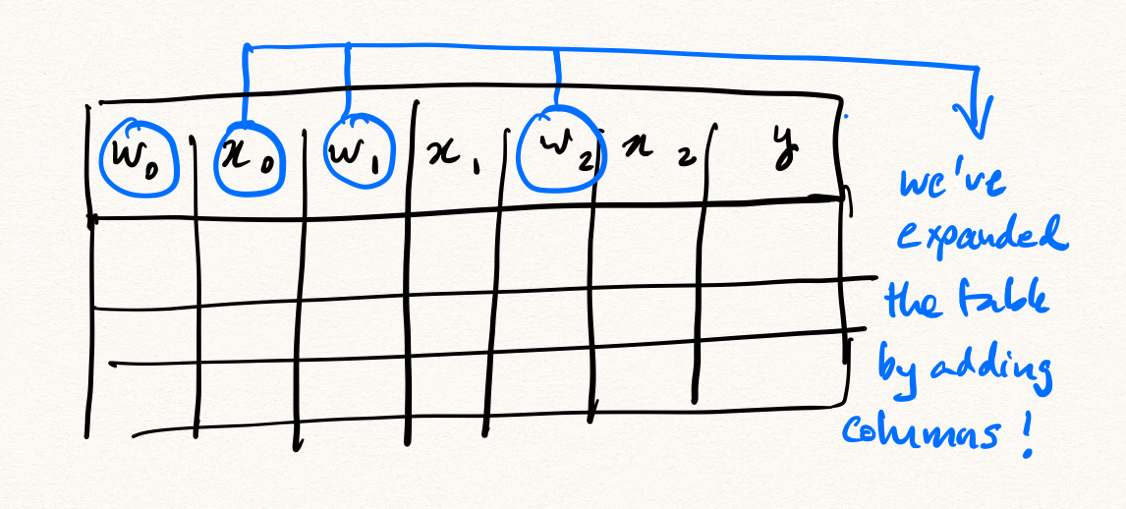 w₀ x₀ w₁ x₁ w₂ x₂ y
we've
expanded
the table
by adding
columns!